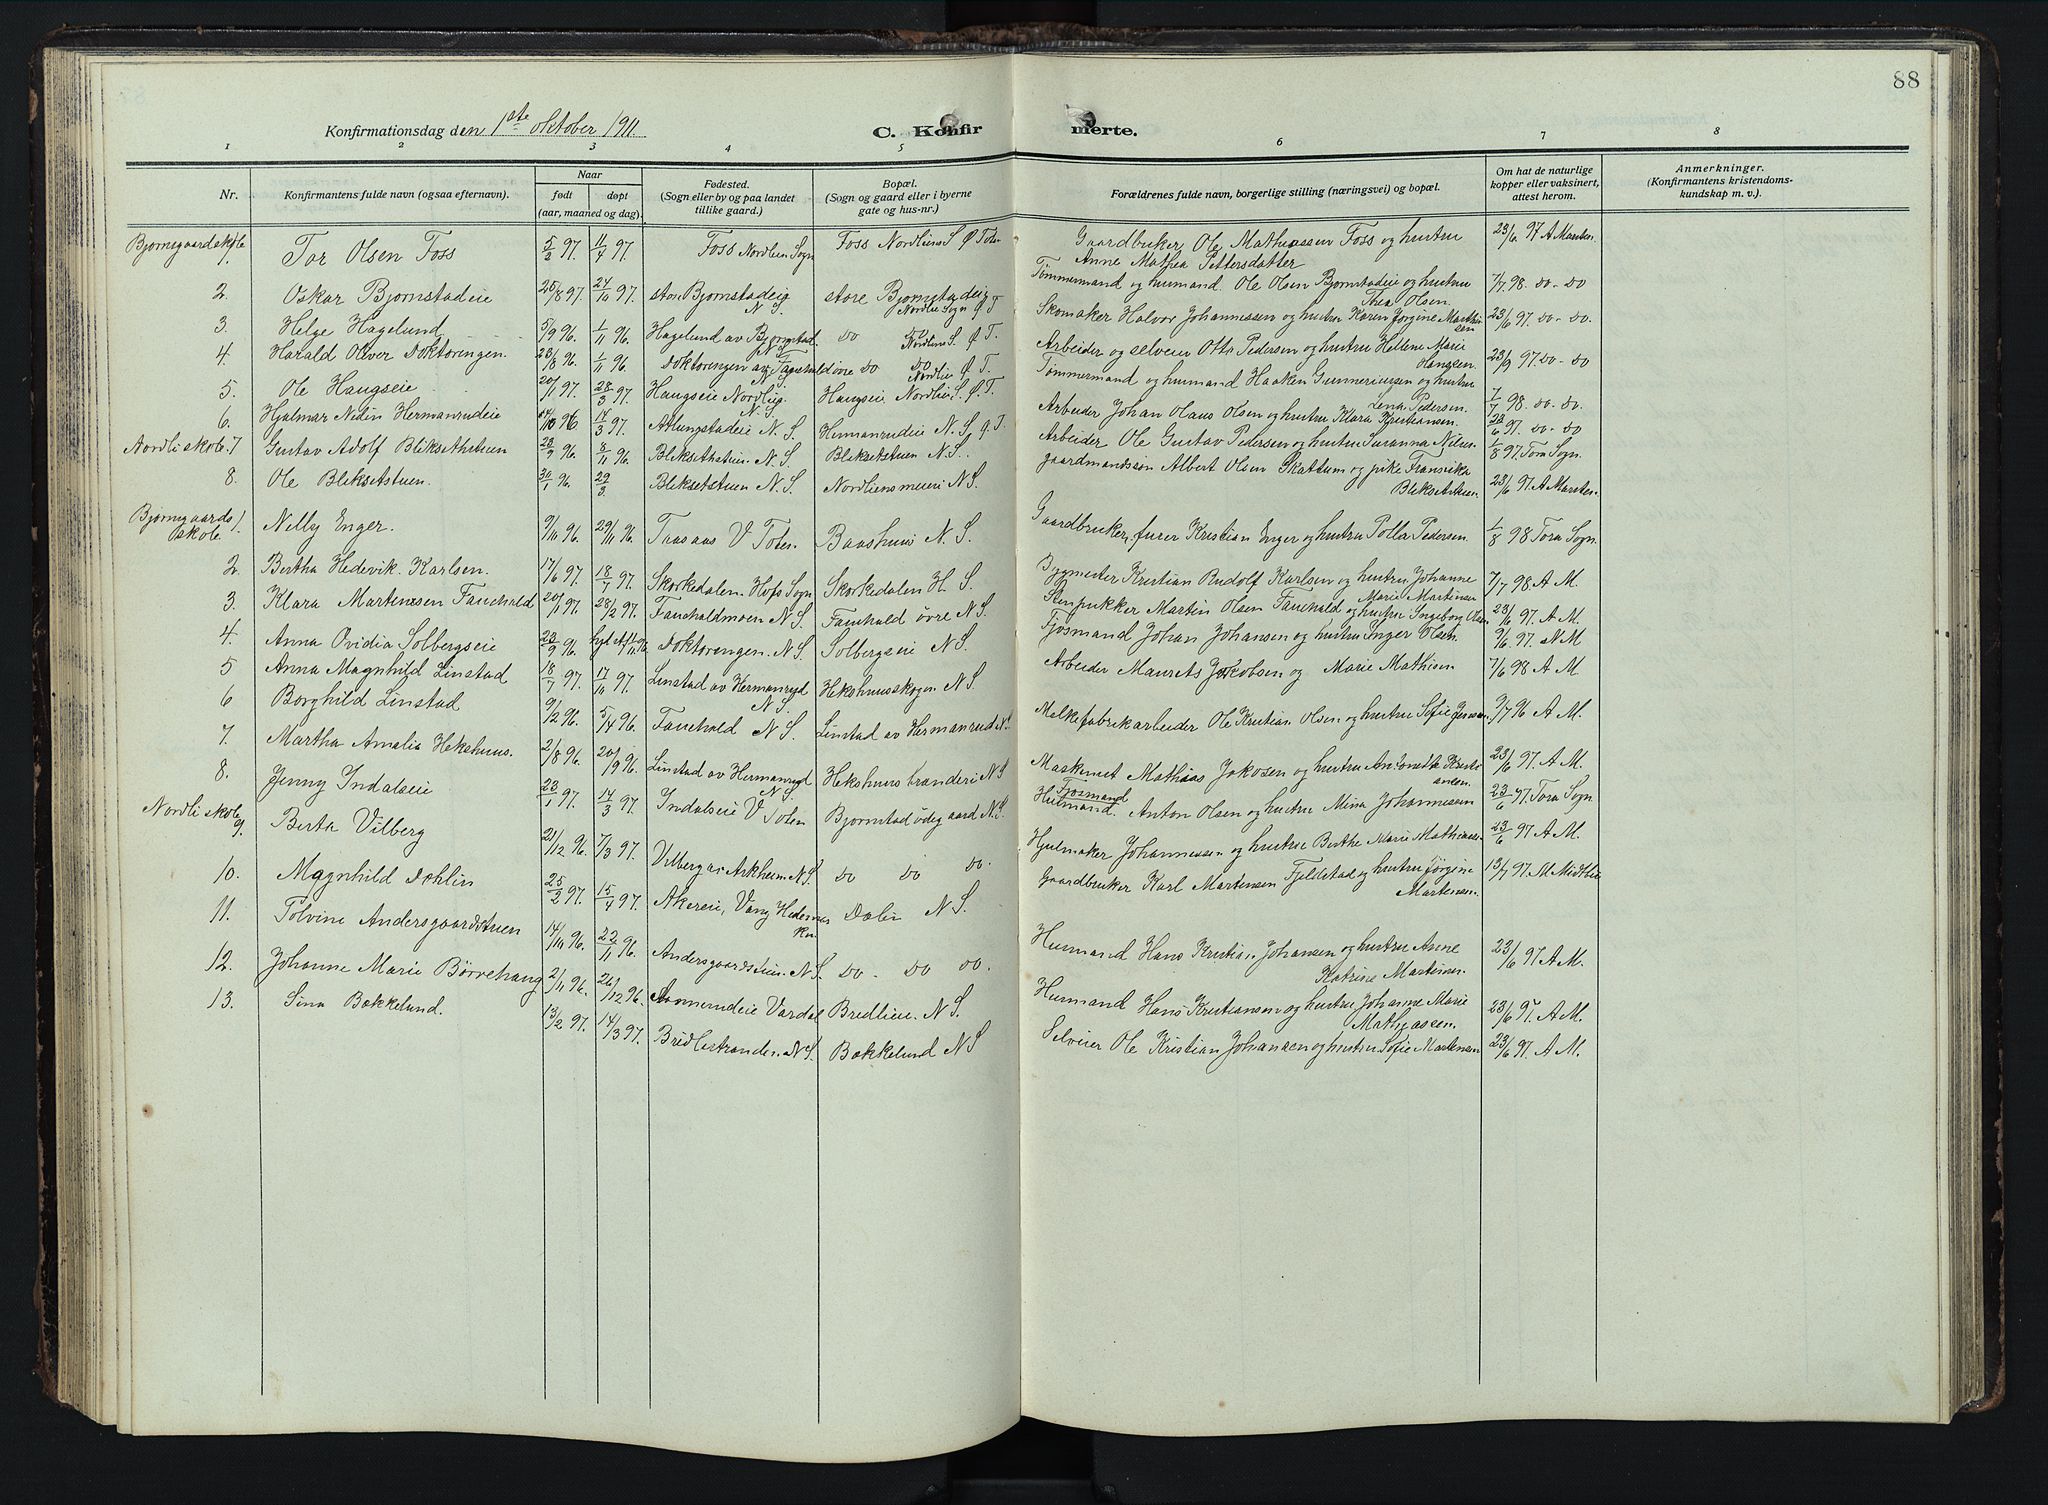 88
Konfirmationsdag den 1ste Oktober 1911.
C. Konfirmerte.
1 2 3 4 5 6 7 8
Nr.
Konfirmantens fulde navn (ogsaa efternavn).
Naar
født døpt
(aar, maaned og dag).
Fødested.
(Sogn eller by og paa landet
tillike gaard.)
Bopæl.
(Sogn og gaard eller i byerne
gate og hus-nr.)
Forældrenes fulde navn, borgerlige stilling (næringsvei) og bopæl.
Om hat de naturlige
kopper eller vaksinert,
attest herom.
Anmerkninger.
(Konfirmantens kristendoms-
kundskap m. v.)
Bjørnsgaard skole 1. Tor Olsen Foss 5/2 97. 11/4 97. Foss Nordlien Sogn Foss Nordliens S Ø Toten Gaardbruker Ole Mathiassen Foss og hustru 23/6 97 A Marsten.
Anne Mathea Pettersdatter
2. Oskar Bjørnstadeie 25/8 97. 24/10 97. store Bjørnstadeig N S. store Bjørnstadeig Nordlie Sogn Ø T Tømmermand og husmand. Ole Olsen Bjørnstadeie og hustru 7/7 98. do - do
Thea Olsen.
3. Helge Hagelund 5/9 96. 1/11 96. Hagelund av Bjørnstad N S do do Nordliens S. Ø T. Skomaker Halvor Johannessen og hustru Karen Jørgine Marthinsen 23/6 97. do - do.
4. Harald Oliver Doktoringen. 23/8 96. 1/11 96. Doktoringen av Fauchald øvre N S do do Nordlie Ø T. Arbeider og selveier Otto Pedersen og hustru Hellene Marie 23/9 97 do - do
Hansen.
5. Ole Haugseie 20/1 97. 28/3 97. Haugseie Nordlieg N S. Haugseie Nordlien S. Ø T. Tømmermand og husmand Haaken Gunneriusen og hustru
Lena Pedersen. 1/7 98. do - do.
6. Hjalmar Nedin Hermanrudeie 14/10 96 14/3 97. Alungstadeie N. S. Hermanrudeie N. S Ø T. Arbeider Johan Olaus Olsen og hustru Klara Kristiansen. 23/6 97. do - do
Nordli skole 7 Gustav Adolf Bleksetstuen 23/9 96. 8/11 96. Bleksetstuen N. S. Bleksetstuen N. S. Arbeider Ole Gustav Pedersen og hustru Susanna Nilsen 1/8 97. Tora Sogn.
8. Ole Bleksetstuen. 30/1 96. 22/3. Bleksetstuen N. S. Nordliens meieri N S. gaardmandssøn Albert Olsen Skattum og pike Fransiska
Bleksetstuen. 23/6 97. A Marsten.
Bjørnsgaards skole 1. Nelly Enger. 9/10 96. 29/11 96. Taasaas V Toten. Baashus N. S. Gaardbruker, furer Kristian Enger og hustru Polla Pedersen. 1/8 98 Tora Sogn.
2. Bertha Hedevik. Karlsen. 17/6 97. 18/7 97. Skorkedalen. Hofs Sogn Skorkedalen H. S. Bygmester Kristian Rudolf Karlsen og hustru Johanne 7/7 98. A M.
Marie Martinsen
3. Klara Martensen Fauchald 20/1 97. 28/2 97. Fauchaldmoen N. S. Fauchald øvre N S. Stenpukker Martin Olsen Fauchald og hustru Ingeborg Olsen 23/6 97. A M.
4. Anna Ovidia Solbergseie 23/9 96. Doktoringen. N S. Solbergseie N. S. Fjøsmand Johan Johansen og hustru Inger Olsen. 9/6 97. A M
5 Anna Magnhild Linstad 18/7 97. 17/10 97. Linstad av Hermanrud N S. Hekshusskogen N. S. Arbeider Maurets Jakobsen og Marie Mathisen 7/6 98 A M.
6 Borghild Linstad 9/2 96. 5/4 96. Fauchald N. S. Linstad av Hermanrud N S. Melkefabrikarbeider Ole Kristian Olsen og hustru Sofie Jensen. 9/7 96 A M.
7. Martha Amalia Hekshus. 2/8 96. 20/9 96. Linstad av Hermanrud N S. Hekshus branderi N S Maskenist Mathias Jakosen og hustru An. Lonette Kristiansen. 23/6 97. A M.
8. Jenny Indalseie 23/1 97. 14/3 97. Indalseie V Toten Bjørnstad ødegaard N. S. Fjøsmand Husmand. Anton Olsen og hustru Mina Johannesen 23/6 97. Tora Sogn.
Nordli skole 9. Berta Vilberg 21/12 96. 7/3 97. Vilberg av Arkheim N S. do do do. Hjulmaker Johannessen og hustru Berthe Marie Mathiassen 23/6 97 A M.
10. Magnhild Dahlin 25/2 97. 15/4 97. Akereie, Vang Hedemarken. Dalen N S. Gaardbruker Karl Martensen Fjeldstad og hustru Jørgine 13/7 97. M Midtlie
Martensen.
11. Tolvine Andersgaardstuen 14/10 96. 22/11 96. Andersgaardstuen. N S. do - do do. Husmand Hans Kristian Johansen og hustru Anne 23/6 97 A M.
Katrine Martinsen.
12. Johanne Marie Børrehaug 2/11 96. 26/12 96. Vardal Bredlien. N S. Husmand Hans Kristiansen og hustru Johanne Marie 23/6 97. A M.
Mathiassen.
13. Sina Bakkelund. 13/2 97. 14/3 97. Bredlistranden. N S. Bakkelund N S Selveier Ole Kristian Johansen og hustru Sofie Martensen 23/6 97. A M.